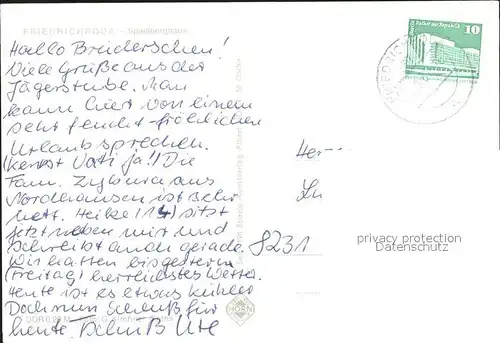 FRIEDRICHRODA - Spießberghaus
Hallo Brüderschen!
Viele Grüße aus der
Jägerstube. Man
kann hier von einem
sehr feucht-fröhlichen
Urlaub sprechen.
(kennst Vati ja!) Die
Fam. aus
Nordhausen ist sehr
nett. Heike (14) sitzt
jetzt neben mir und
schreibt auch gerade.
Wir hatten bis gestern
(Freitag) herrlichstes Wetter.
Heute ist es etwas kühler
Doch nun Schluß für
heute. Tschüß Ute
DDR
10
Herr
In
8231
privacy protection
Datenschutz